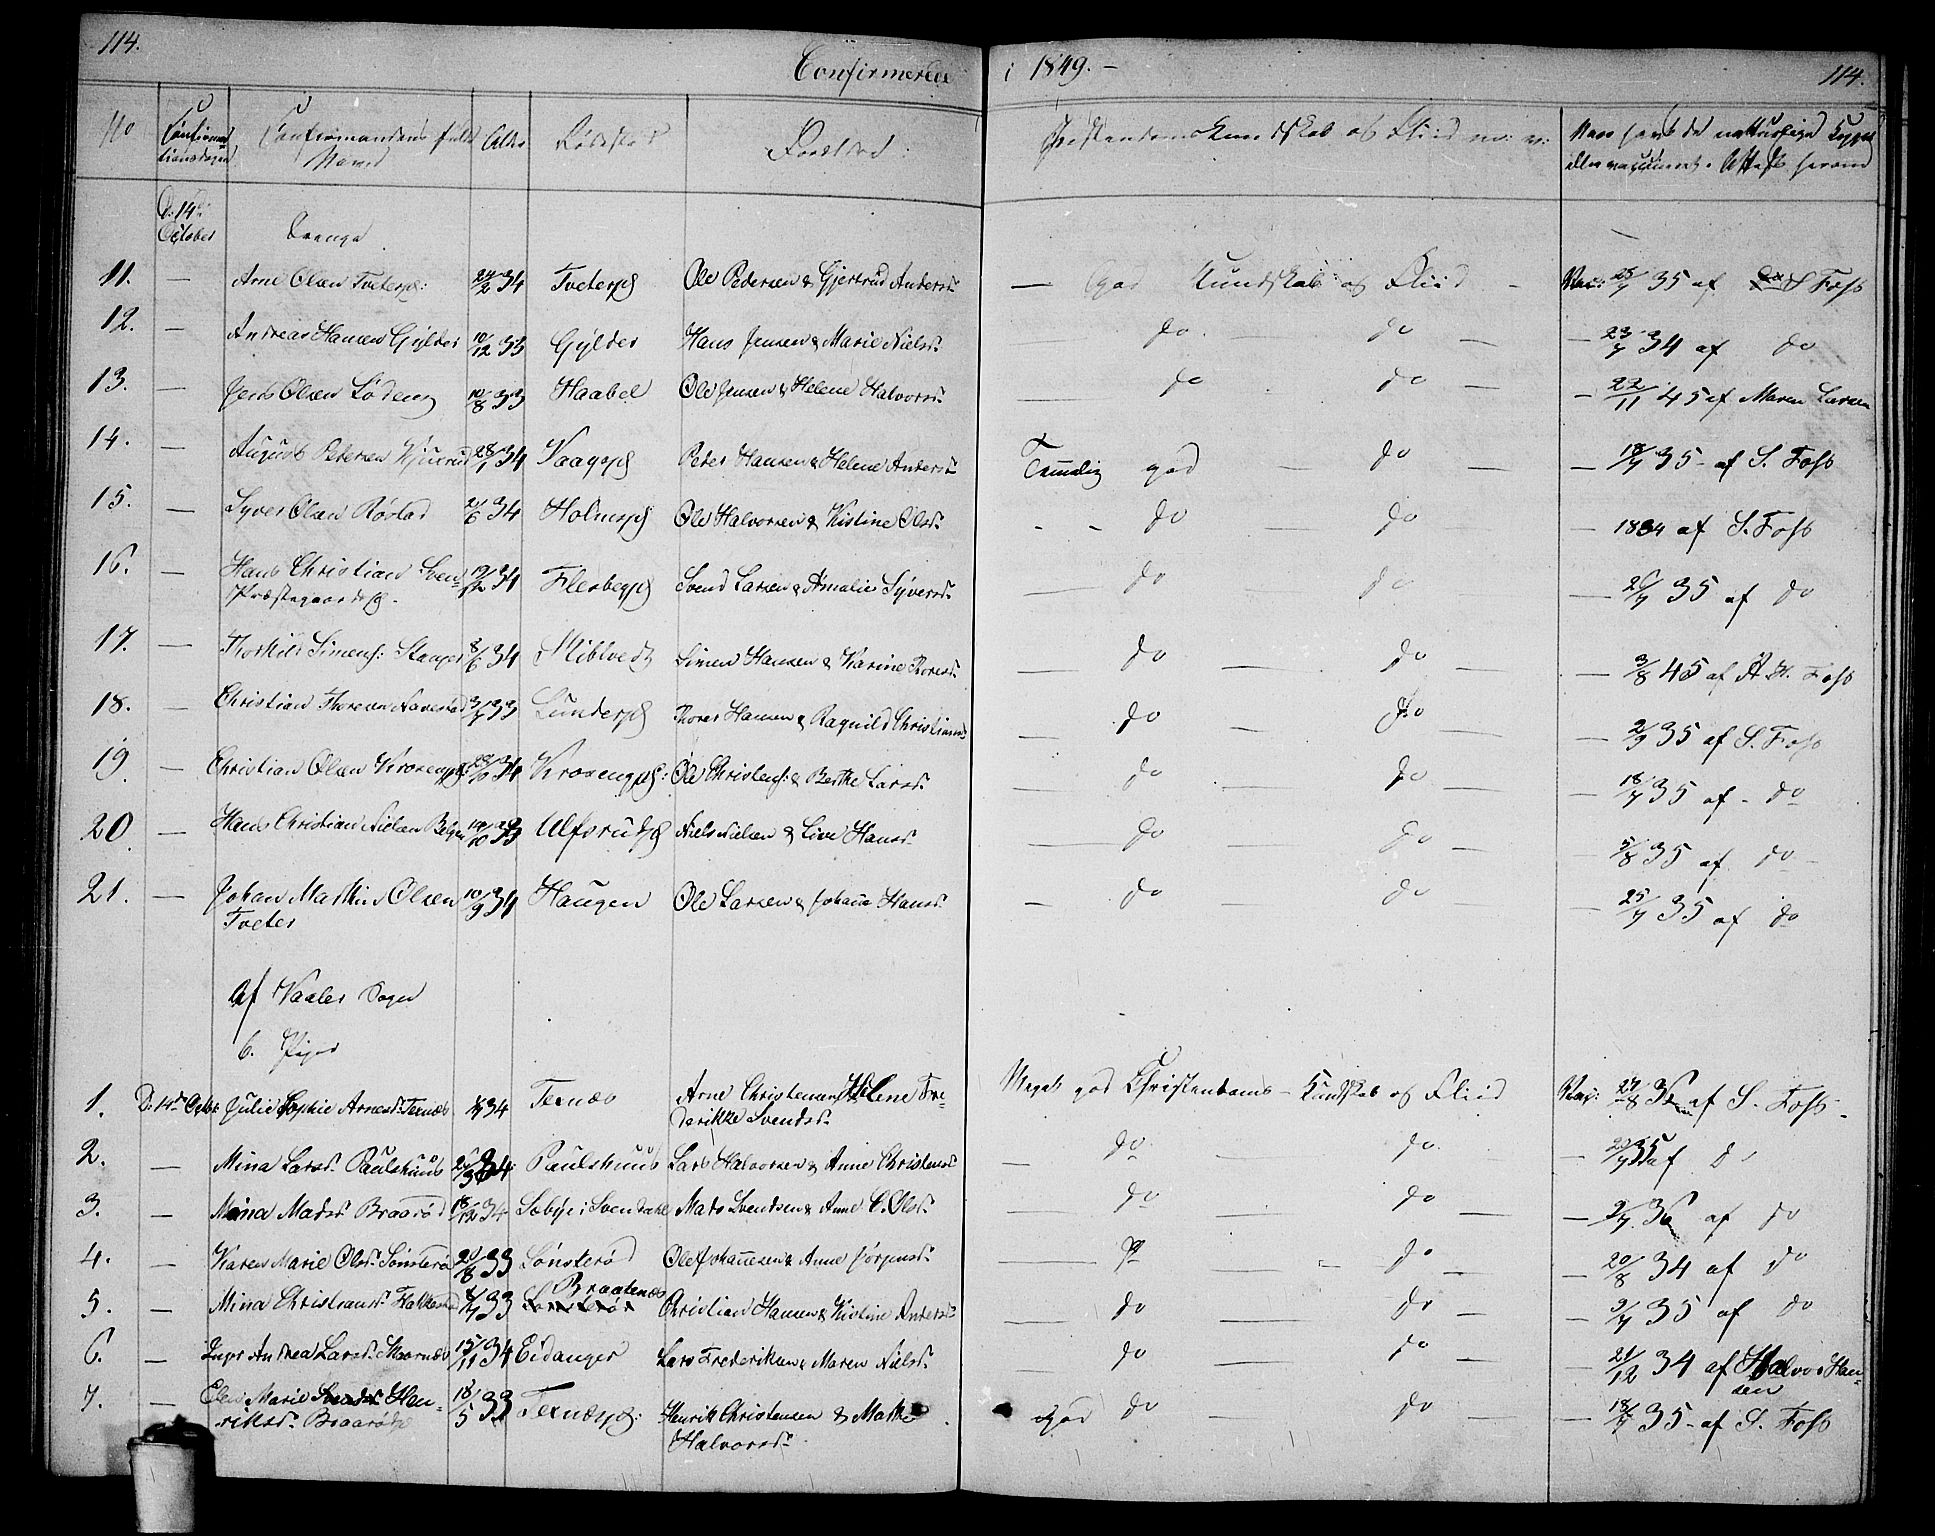 114.
Confirmerede
i 1849. -
114.
No
Confirmationsdagen
Confirmandens fulde Navn
Alder
Fødested
Forældre
Christendoms Kundskab og Fliid m: m:
eller vaccineret. Attest herom
D: 14de October
Drenge
11. — Arne Olsen Tveterpl: 24/2 34 Tveterpl Ole Pedersen & Gjertrud Andersd. — God Kundskab og Fliid - Vac: 25/7 35 af S Foss
12. — Andreas Hansen Gylder 10/12 33 Gylder Hans Jensen & Marie Nielsd. do do — — 23/7 34 af do
13. — Jens Olsen Lødeng 10/8 33 Haabel Ole Jensen & Helene Halvorsd. — do do — — 22/11 45 af Maren Larsen
14. — August Petersen 28/1 34 Vaagepl Peder Hansen & Helene Andersd. Temelig god — do — — 18/7 35 - af S. Foss
15. — Syver Olsen Røstad 21/6 34 Holmepl Ole Halvorsen & Kistine Olsd. - - do — do — 1834 af S. Foss
16. — Hans Christian Svendsen
Præstegaardspl. 19/12 34 Flesbegpl Svend Larsen & Amalie Syversd. — do — do — — 26/7 35 af do
17. — Thorkild Simens: Stange 8/6 34 Mibltvedt Simen Hansen & Karine Thoresd. — do — do — — 3/8 45 af A. H. Foss
18. — Christian Thoresen Navestad 3/7 33 Lunderpl Thores Hansen & Ragnild Christiansd — do — do — 2/9 35 af S. Foss
19 — Christian Olsen Krosengpl 28/10 34 Krosengpl: Ole Christens: & Berthe Larsd. — do — do — — 18/7 35 af - do
20. — Hans Christian Nielsen 19/10 33 Ulfsrudpl Niels Nielsen & Live Hansd. — do — do — — 5/8 35 af do -
21. — Johan Marthin Olsen
Tveter 10/9 34 Haugen Ole Larsen & Johanne Hansd. — do — do — — 25/7 35 af do
Af Vaaler Sogn
b. Piger
1. D: 14de Octbr Julie Sophie Arnesd. Ternæs 34 Ternæs Arne Christensen & Helene Frederikke Svendsd. Meget god Christendoms - Kundskab og Fliid Vac: 24/8 36 af S. Foss.
2. — Mina Larsd. Paulshuus 34: Paulshuus Lars Halvorsen & Anne Christensd. — do do — — 35 af do
3. — Mina Madsd. Braarød 18/12 34 Sobye i Svendahl Mads Svendsen & Anne C. Olsd. — do — do — — 2/7. 36 af do
4. — Karen Marie Olsd. Sønsterød 20/8 33 Sønsterød Ole Johannesen & Anne Jørgensd. — do - do — — 20/8 34 af do
5. — Mina Christiansd. 33 Braatenæs Christian Hansen & Kistine Andersd. — do — do — — 2/7 35 af do
6. — Inger Andrea Larsd. 15/11 34 Eidanger Lars Frederiksen & Maren Nielsd. — do — do — — 21/12 34 af Halvor Hansen
7. — Elen Marie Henriksd. Braarødpl 18/5 33 Ternæspl: Henrik Christensen & Mathe
Halvorsd. god do — do — — 18/7 35 - af S. Foss